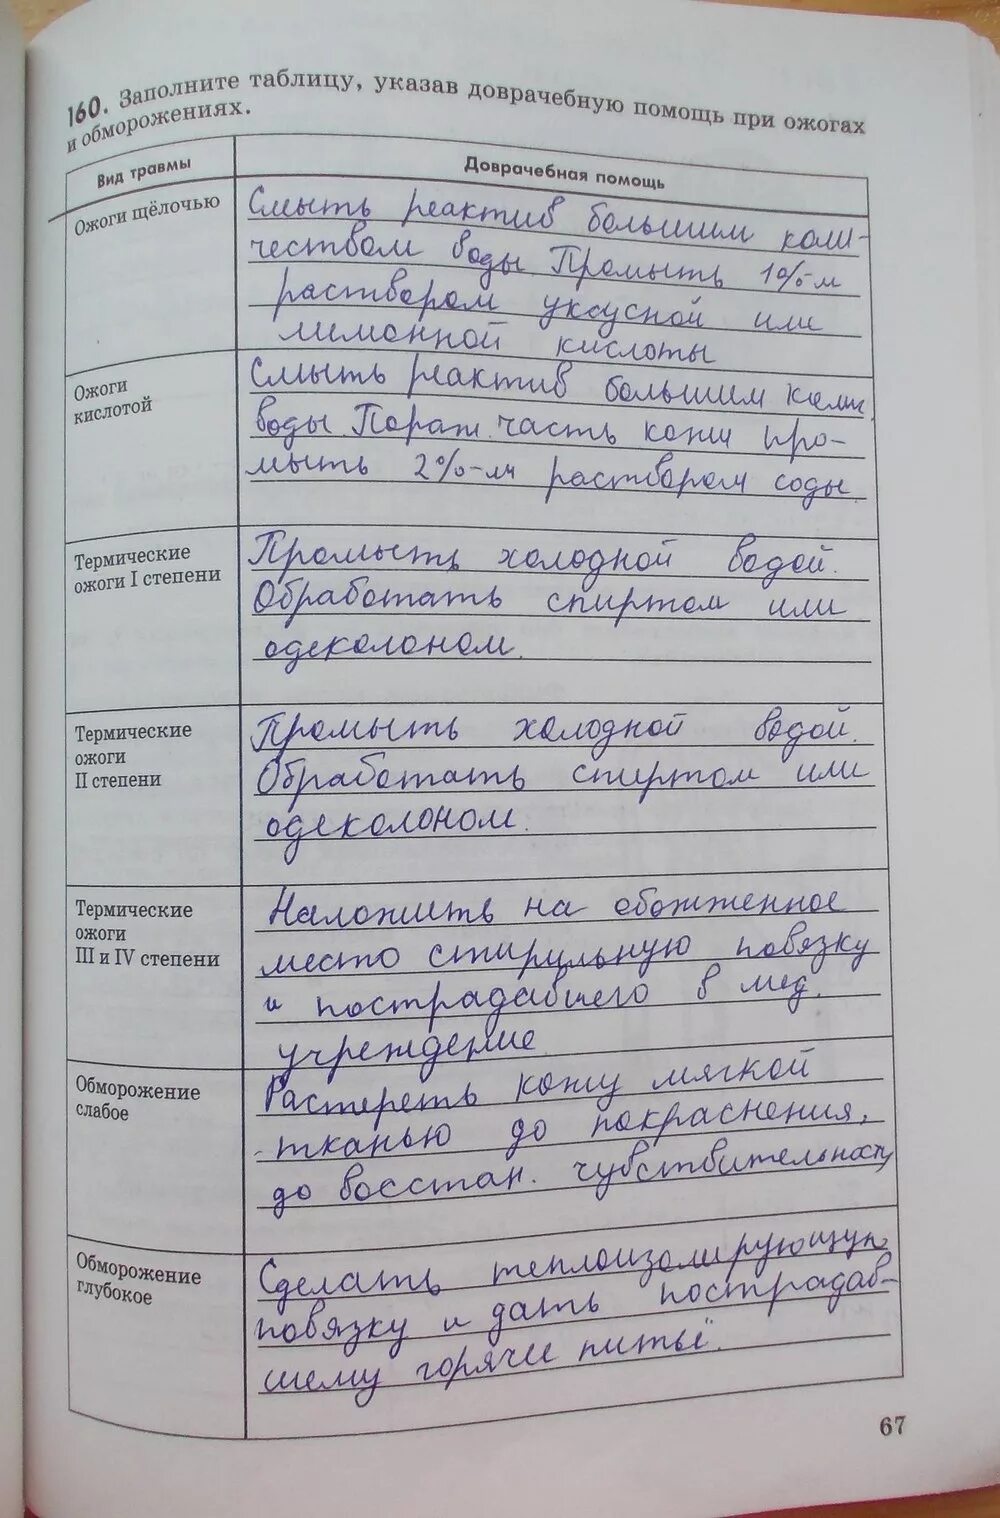 160. Заполните таблицу, указав доврачебную помощь при ожогах
и обморожениях.
Вид травмы
Доврачебная помощь
Ожоги щёлочью
Смыть реактив большим коли-
чеством воды Промыть 1%-м
раствором уксусной или
лимонной кислоты
Ожоги
кислотой
Смыть реактив большим колич.
воды. Пораж. часть кожи про-
мыть 2%-м раствором соды.
Термические
ожоги I степени
Промыть холодной водой.
Обработать спиртом или
одеколоном.
Термические
ожоги
II степени
Промыть холодной водой.
Обработать спиртом или
одеколоном.
Термические
ожоги
III и IV степени
Наложить на обожженное
место стирульную повязку
и пострадавшего в мед.
учреждение
Обморожение
слабое
Растереть кожу мягкой
тканью до покраснения,
до восстан. чувствительности
Обморожение
глубокое
Сделать теплоизолирующую
повязку и дать пострадав-
шему горячее питьё.
67